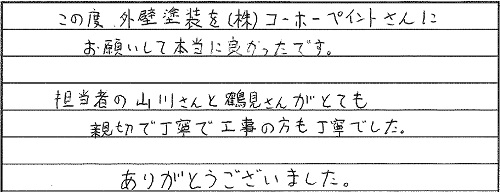 この度 外壁塗装を(株)コーホーペイントさんに
お願いして本当に良かったです。
担当者の山川さんと鶴見さんがとても
親切で丁寧で工事の方も丁寧でした。
ありがとうございました。